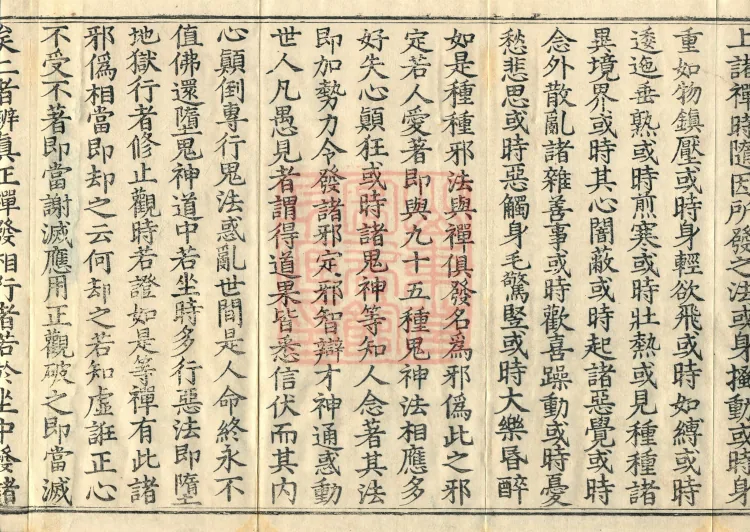 上諸禪時隨因所發之法或身搔動或時身
重如物鎮壓或時身輕欲飛或時如縛或時
逶迤垂熟或時煎寒或時壯熱或見種種諸
異境界或時其心闇蔽或時起諸惡覺或時
念外散亂諸雜善事或時歡喜躁動或時憂
愁悲思或時惡觸身毛驚竪或時大樂昏醉
如是種種邪法與禪俱發名爲邪僞此之邪
定若人愛著即與九十五種鬼神法相應多
好失心顛狂或時諸鬼神等知人念著其法
即加勢力令發諸邪定邪智辯才神通惑動
世人凡愚見者謂得道果皆悉信伏而其內
心顛倒專行鬼法惑亂世間是人命終永不
值佛還墮鬼神道中若坐時多行惡法即墮
地獄行者修止觀時若證如是等禪有此諸
邪僞相當即却之云何却之若知虛誑正心
不受不著即當謝滅應用正觀破之即當滅
矣二者辨真正禪發相行者若於坐中發諸